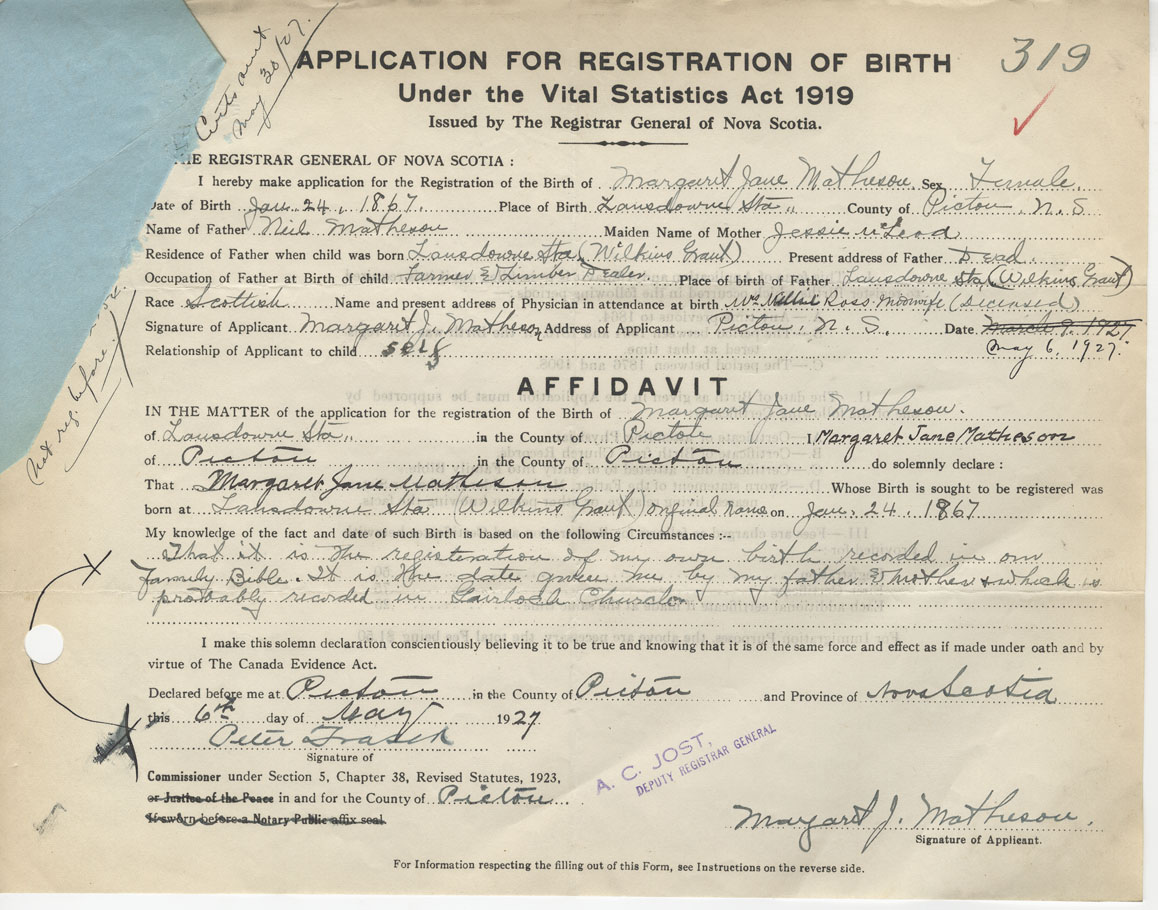 Certs sent
May 30/27.
319
APPLICATION FOR REGISTRATION OF BIRTH
Under the Vital Statistics Act 1919
Issued by The Registrar General of Nova Scotia.
THE REGISTRAR GENERAL OF NOVA SCOTIA :
I hereby make application for the Registration of the Birth of Margaret Jane Matheson Sex Female
Date of Birth Jan. 24, 1867. Place of Birth Lansdowne Sta., County of Pictou, N.S
Name of Father Neil Matheson Maiden Name of Mother Jessie McLeod
Residence of Father when child was born Lansdowne Sta (Wilkins Grant) Present address of Father Dead
Occupation of Father at Birth of child Farmer & Lumber Dealer Place of birth of Father Lansdowne Sta (Wilkins Grant)
Race Scottish Name and present address of Physician in attendance at birth Mrs Ross Midwife (deceased)
Signature of Applicant Margaret J. Matheson Address of Applicant Pictou, N.S. Date March 9, 1927
May 6, 1927.
Relationship of Applicant to child self
not reg. before
AFFIDAVIT
IN THE MATTER of the application for the registration of the Birth of Margaret Jane Matheson.
of Lansdowne Sta., in the County of Pictou I Margaret Jane Matheson
of Pictou in the County of Pictou do solemnly declare :
That Margaret Jane Matheson Whose Birth is sought to be registered was
born at Lansdowne Sta (Wilkins Grant) original name on Jan. 24. 1867
My knowledge of the fact and date of such Birth is based on the following Circumstances :--
That it is the registration of my own birth recorded in our
family Bible. It is the date given me by my father & mother & which is
probably recorded in Gairloch Church
I make this solemn declaration conscientiously believing it to be true and knowing that it is of the same force and effect as if made under oath and by
virtue of The Canada Evidence Act.
Declared before me at Pictou in the County of Pictou and Province of Nova Scotia
this 6th day of May 1927
Peter Fraser
Signature of
Commissioner under Section 5, Chapter 38, Revised Statutes, 1923,
or Justice of the Peace in and for the County of Pictou
If sworn before a Notary Public affix seal.
A. C. JOST,
DEPUTY REGISTRAR GENERAL
Margaret J. Matheson.
Signature of Applicant.
For Information respecting the filling out of this Form, see Instructions on the reverse side.